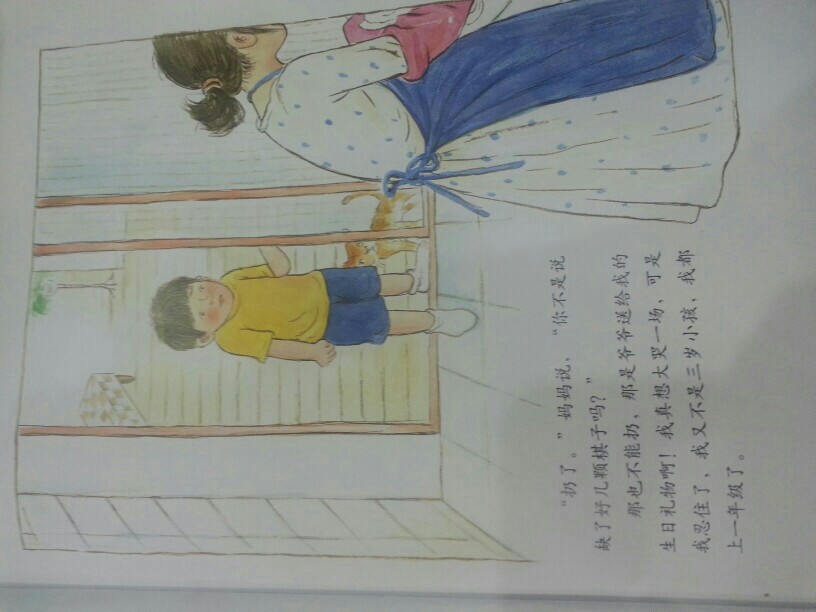 “扔了。”妈妈说，“你不是说
缺了好几颗棋子吗？”
那也不能扔，那是爷爷送给我的
生日礼物啊！我真想大哭一场，可是
我忍住了，我又不是三岁小孩，我都
上一年级了。